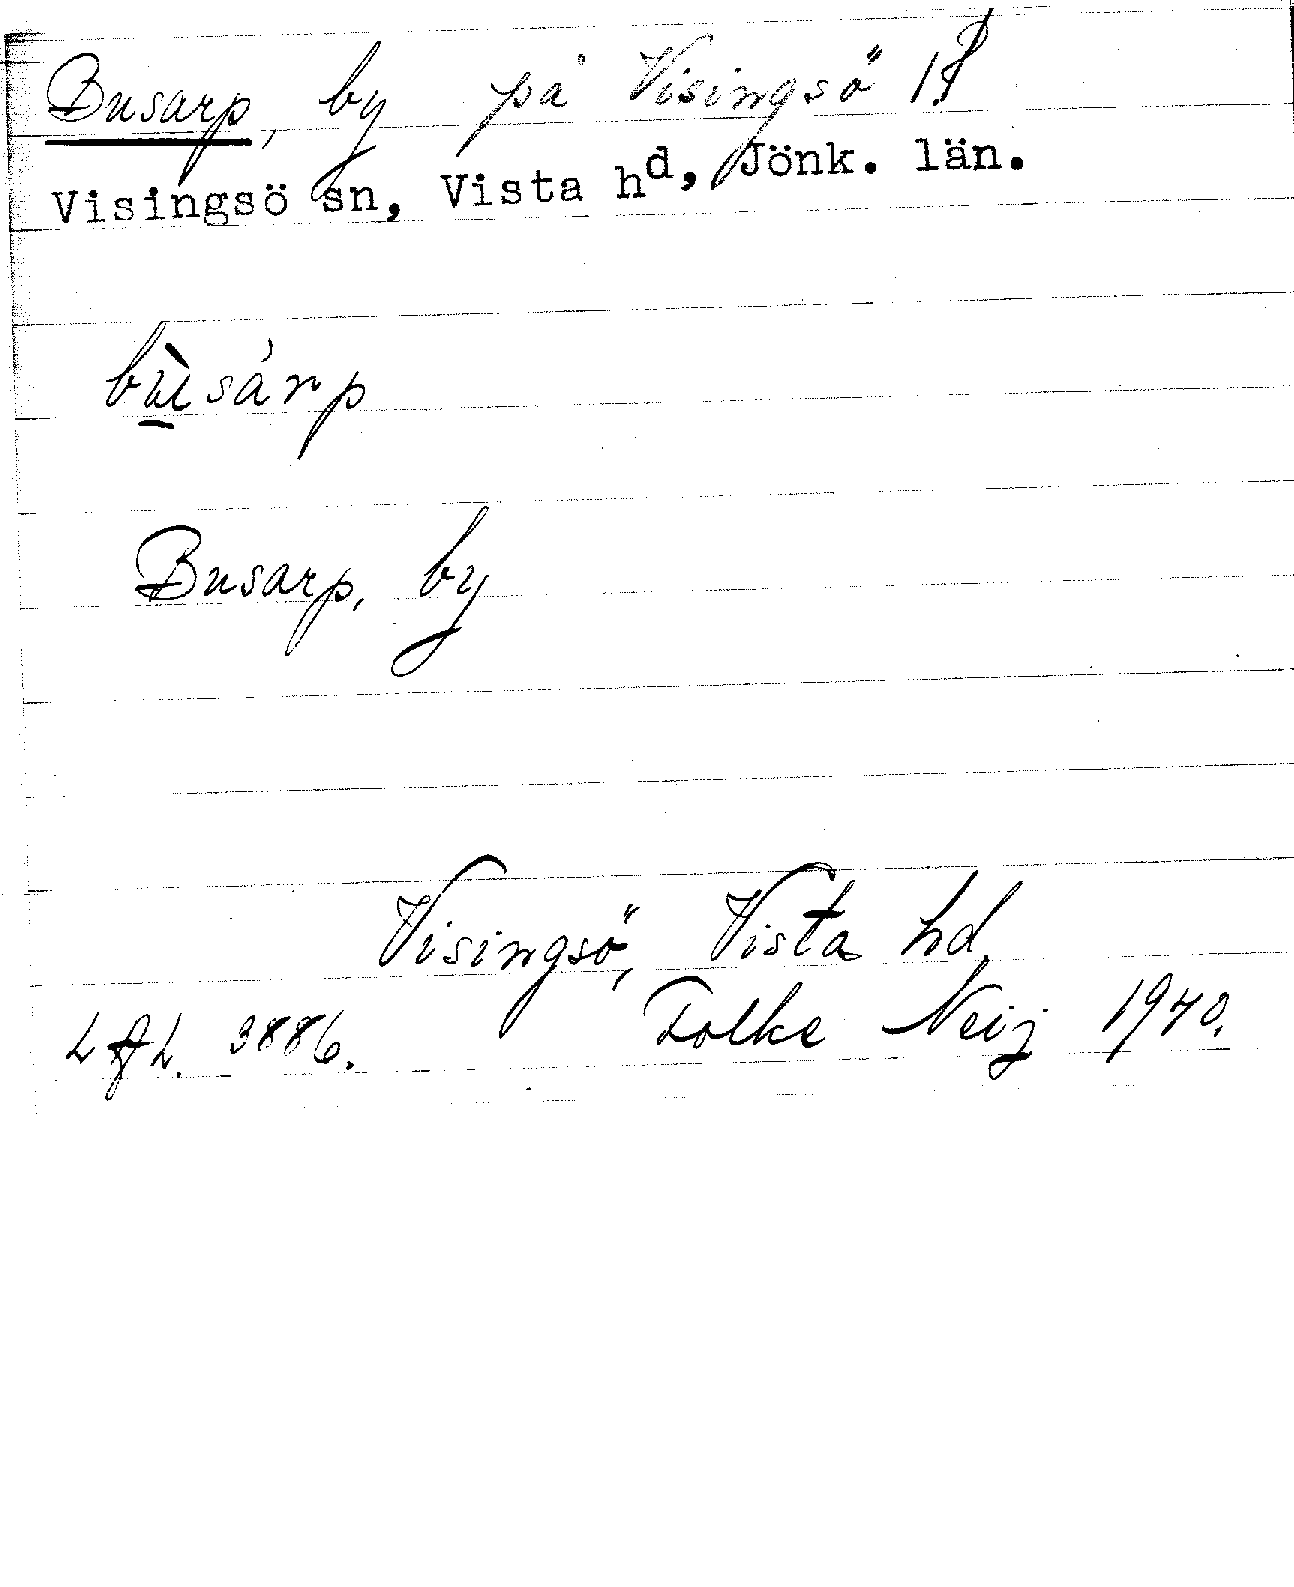 Busarp, by på Visingsö
Visingsö sn, Vista hd, Jönk. län.
bù̲sárp
Busarp, by
Visingsö, Vista hd.
3886. Folke Neij 1940.